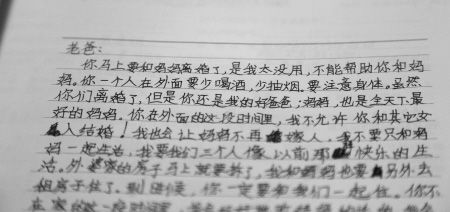 老爸：
你马上要和妈妈离婚了，是我太没用，不能帮助你和妈
妈。你一个人在外面要少喝酒，少抽烟，要注意身体。虽然
你们离婚了，但是你还是我的好爸爸；妈妈，也是全天下最
好的妈妈。你在外面的这段时间里，我不允许你和其它女
人结婚！我也会让妈妈不再嫁人。我不要只和妈
妈一起生活，我要我们三个人像以前那快乐的生
活。外婆家的房子马上就要拆了，我和妈妈也要另外去
租房子住了。到时候，你一定要和我们一起住。你不
在家的这一段时间